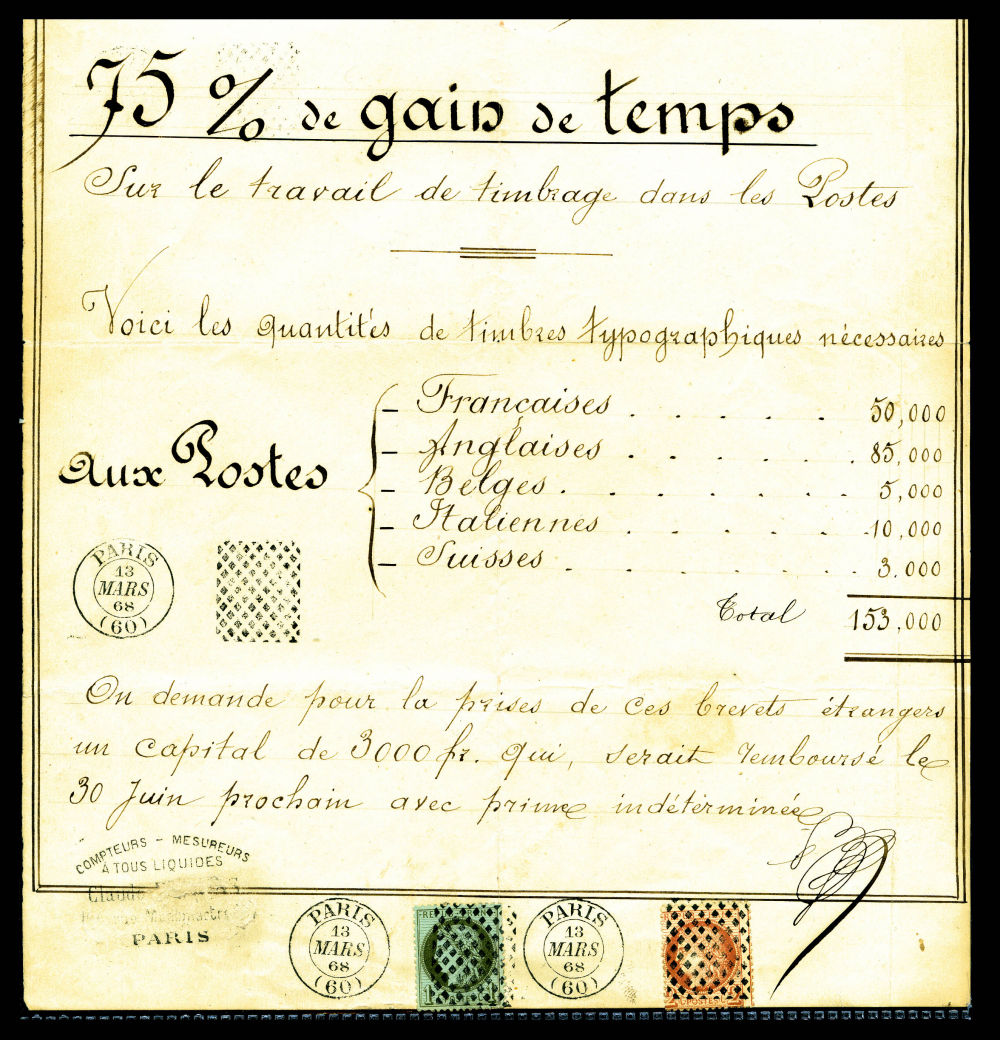 75 % de gain de temps
Sur le travail de timbrage dans les Postes
Voici les quantités de timbres typographiques nécessaires
aux Postes
- Françaises . . . . . 50,000
- Anglaises . . . . . . 85,000
- Belges . . . . . . . 5,000
- Italiennes . . . . . . 10,000
- Suisses . . . . . . . 3.000
Total 153,000
PARIS
13
MARS
68
(60)
On demande pour la prises de ces brevets étrangers
un capital de 3000 fr. qui, serait remboursé le
30 Juin prochain avec prime indéterminée
COMPTEURS - MESUREURS
A TOUS LIQUIDES
Claude
Montmartre
PARIS
PARIS
13
MARS
68
(60)
PARIS
13
MARS
68
(60)